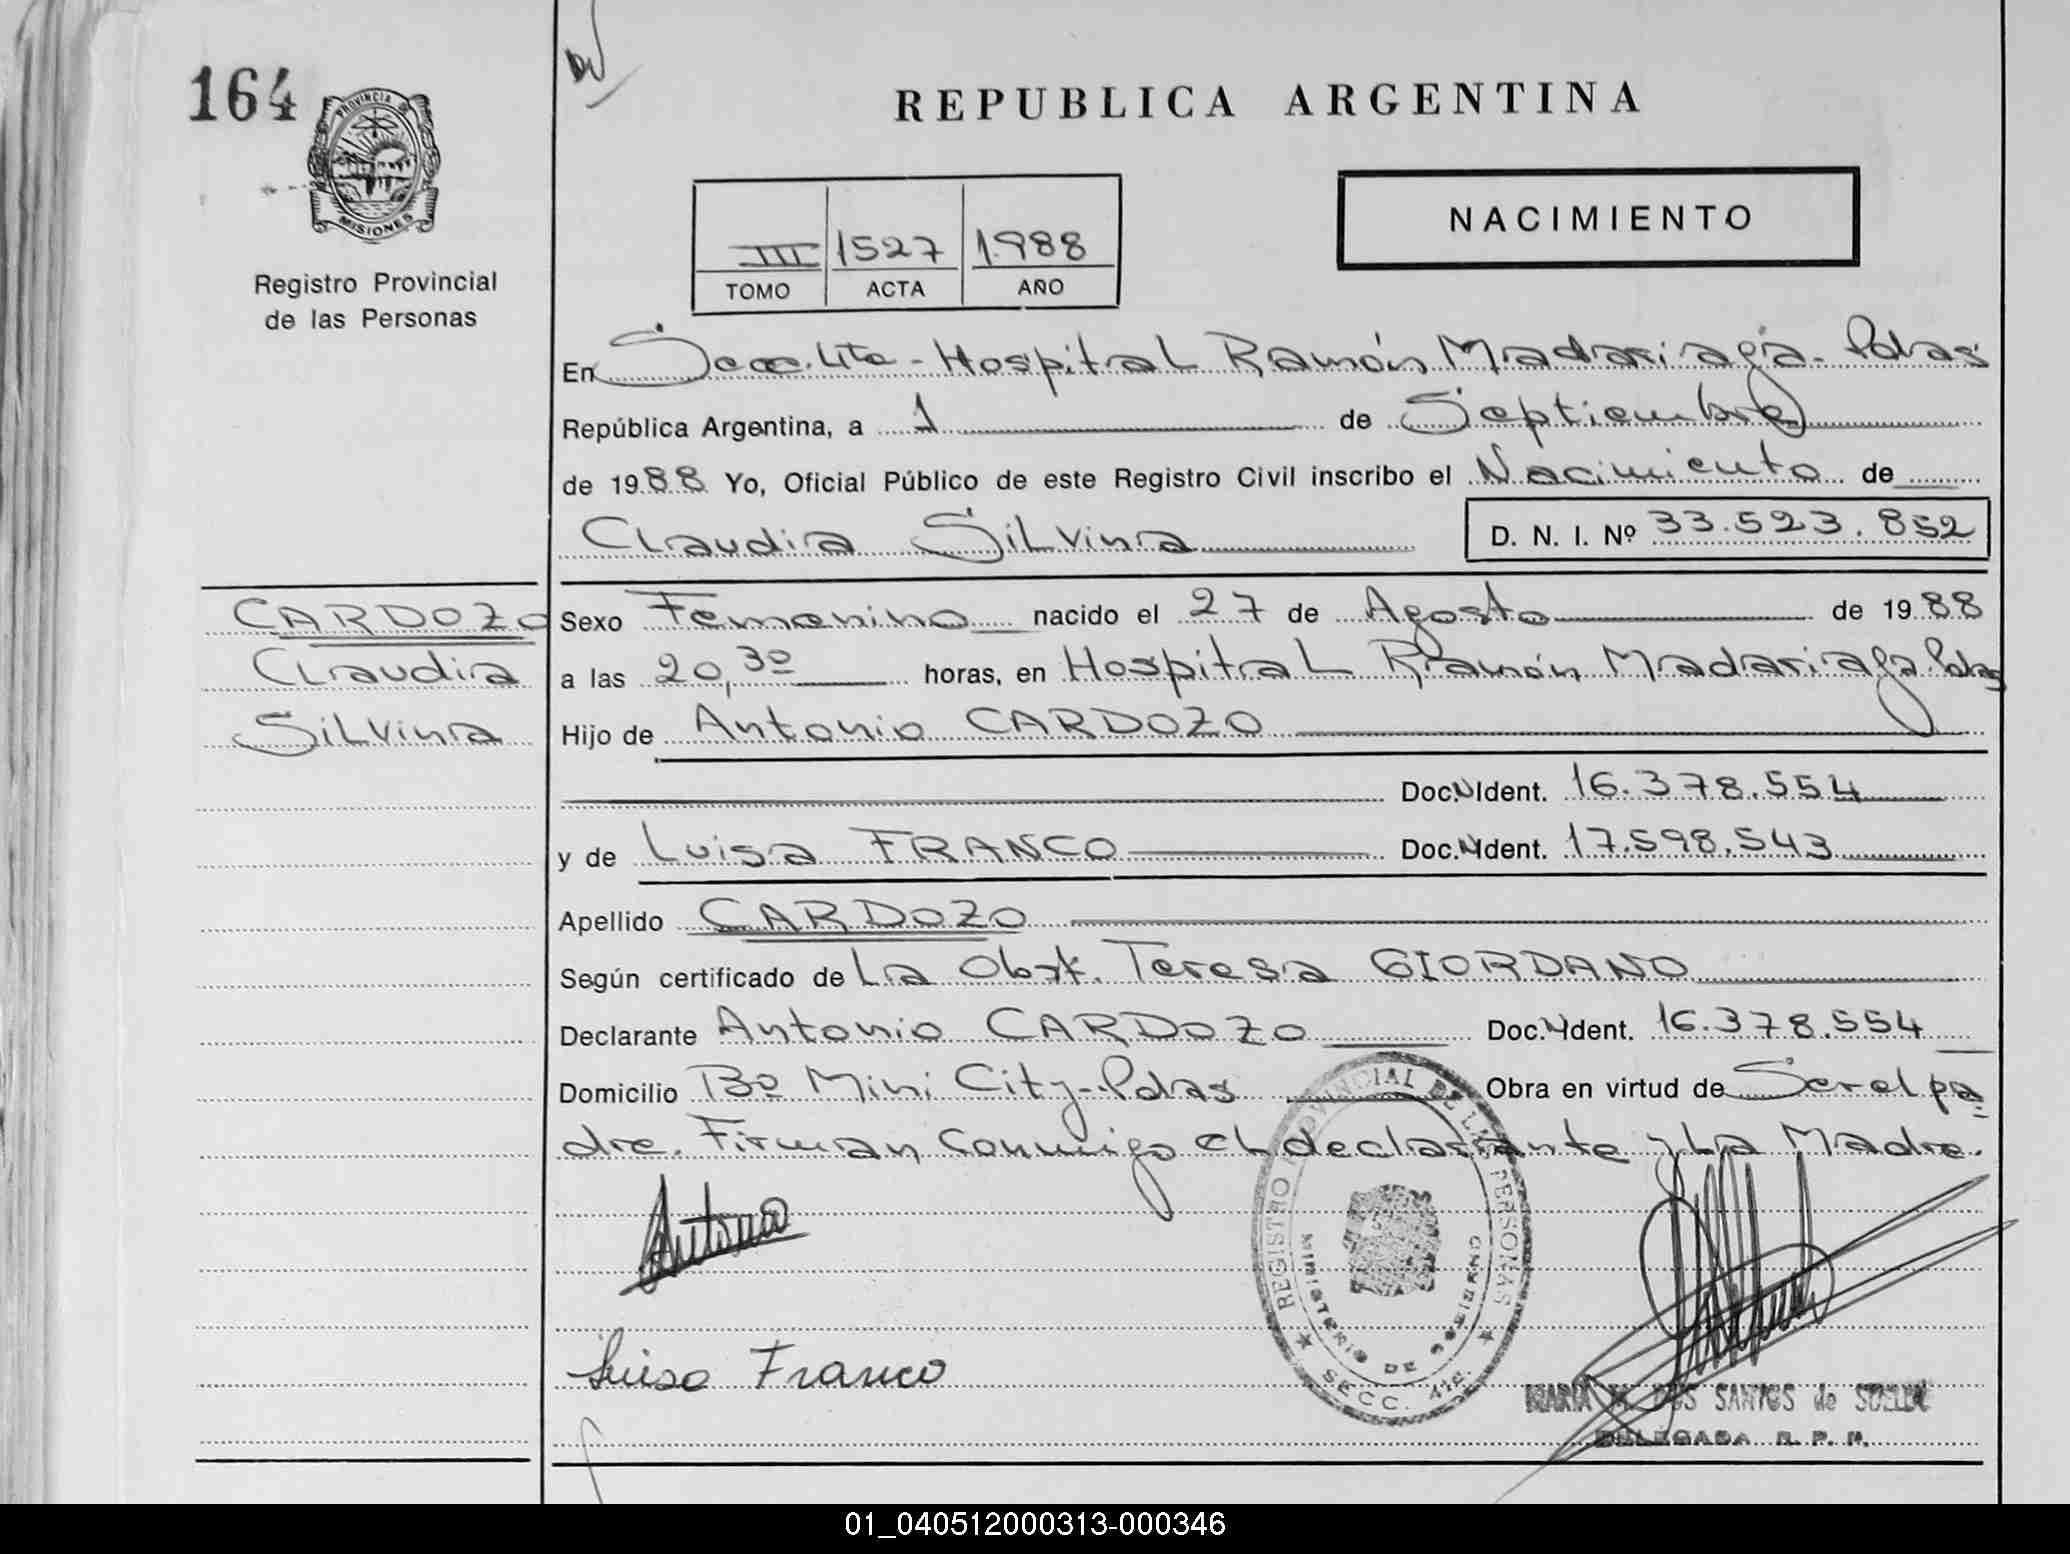 164
PROVINCIA DE
MISIONES
Registro Provincial
de las Personas
REPUBLICA ARGENTINA
NACIMIENTO
III 1527 1988
TOMO ACTA AÑO
En Secc. 4ta - Hospital Ramón Madariaga - Pdas
República Argentina, a 1 de Septiembre
de 1988 Yo, Oficial Público de este Registro Civil inscribo el Nacimiento de
Claudia Silvina D. N. I. Nº 33.523.852
CARDOZO
Claudia
Silvina
Sexo Femenino nacido el 27 de Agosto de 1988
a las 20,30 horas, en Hospital Ramón Madariaga Pdas
Hijo de Antonio CARDOZO
Doc. N Ident. 16.378.554
y de Luisa FRANCO Doc. N Ident. 17.598.543
Apellido CARDOZO
Según certificado de La Obst. Teresa GIORDANO
Declarante Antonio CARDOZO Doc. N Ident. 16.378.554
Domicilio Bº Mini City - Pdas Obra en virtud de Ser el pa=
dre. Firman conmigo el declarante y La Madre.
Antonio
REGISTRO PROVINCIAL DE LAS PERSONAS
MINISTERIO DE GOBIERNO
SECC. 4ta
Luisa Franco
MARIA DOS SANTOS de
DELEGADA R. P. P.
01_040512000313-000346